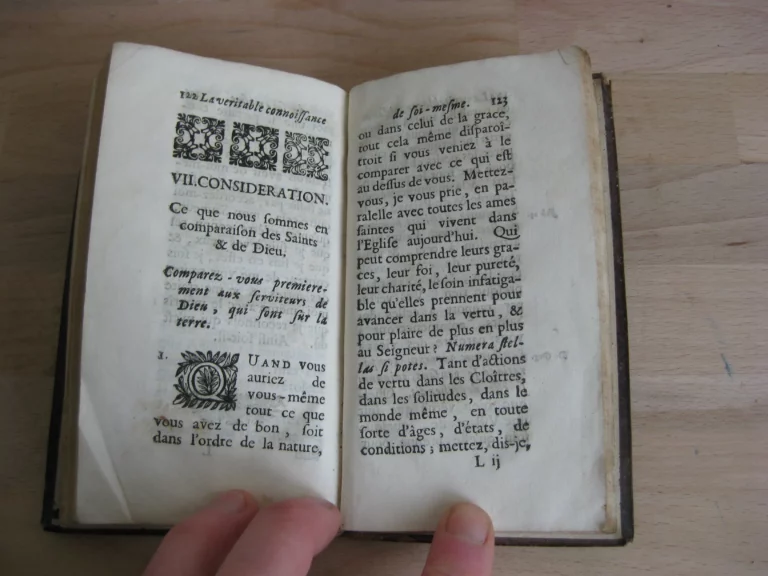 122 La veritable connoiſſance
VII. CONSIDERATION.
Ce que nous ſommes en
comparaiſon des Saints
& de Dieu.
Comparez-vous premiere-
ment aux ſerviteurs de
Dieu, qui ſont ſur la
terre.
1. QUAND vous
auriez de
vous-même
tout ce que
vous avez de bon, ſoit
dans l'ordre de la nature,
de ſoi-meſme. 123
ou dans celui de la grace,
tout cela même diſparoî-
troit ſi vous veniez à le
comparer avec ce qui eſt
au deſſus de vous. Mettez-
vous, je vous prie, en pa-
ralelle avec toutes les ames
ſaintes qui vivent dans
l'Egliſe aujourd'hui. Qui
peut comprendre leurs gra-
ces, leur foi, leur pureté,
leur charité, le ſoin infatiga-
ble qu'elles prennent pour
avancer dans la vertu, &
pour plaire de plus en plus
au Seigneur? Numera ſtel-
las ſi potes. Tant d'actions
de vertu dans les Cloîtres,
dans les ſolitudes, dans le
monde même, en toute
ſorte d'âges, d'états, de
conditions; mettez, dis-je,
L ij